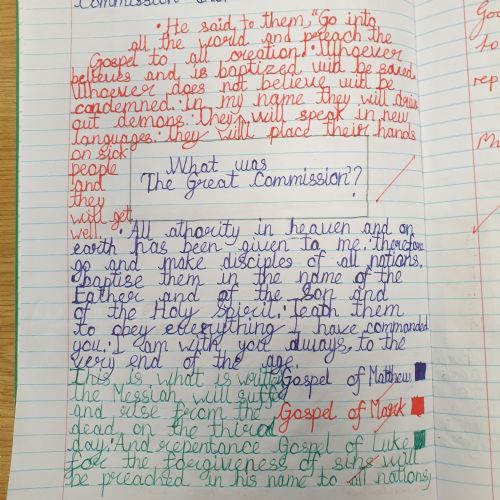 Commission
• He said to them, "Go into
all the world and preach the
Gospel to all creation. • Whoever
believes and is baptized will be saved.
Whoever does not believe will be
condemned. • In my name they will drive
out demons. • They will speak in new
languages. • They will place their hands
on sick
people
and
they
will get
well.
What was
The Great Commission??
• All athority in heaven and on
earth has been given to me. therefore
go and make disciples of all nations,
• baptise them in the name of the
Father and of the Son and
of the Holy Spirit. • Teach them
to obey everything I have commanded
you. • I am with you always, to the
very end of the age.
This is what is written
the Messiah will suffer
and rise from the
dead on the third
day. • And repentance
for the forgiveness of sins will
be preached in his name to all nations,
Gospel of Matthew
Gospel of Mark
Gospel of Luke
to
rep